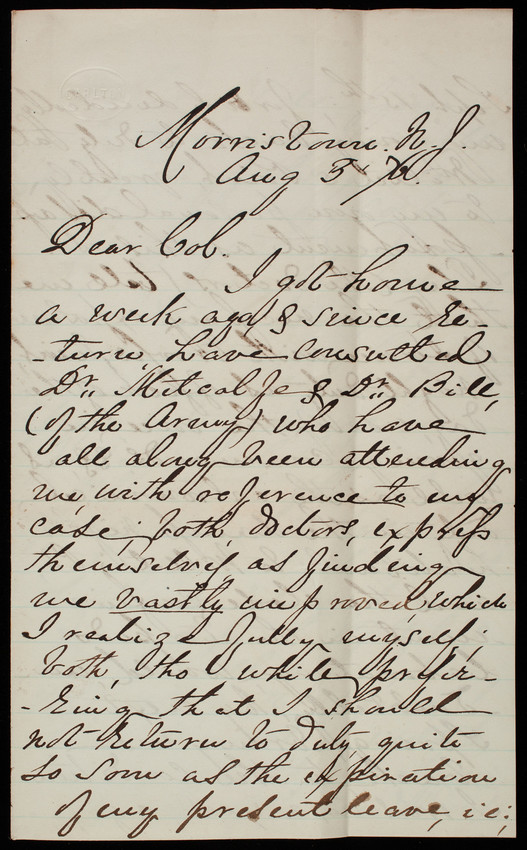 Morristown. N. J.
Aug 3 / 76.
Dear Col.
I got home
a week ago & since re-
-turn, have consulted
Dr. Metcalfe & Dr. Bill,
(of the Army) who have
all along been attending
me, with reference to my
case; both, doctors, express
themselves as finding
me vastly improved, which
I realize fully myself;
both, tho' while prefer-
-ring that I should
not return to duty quite
so soon as the expiration
of my present leave, i.e.;